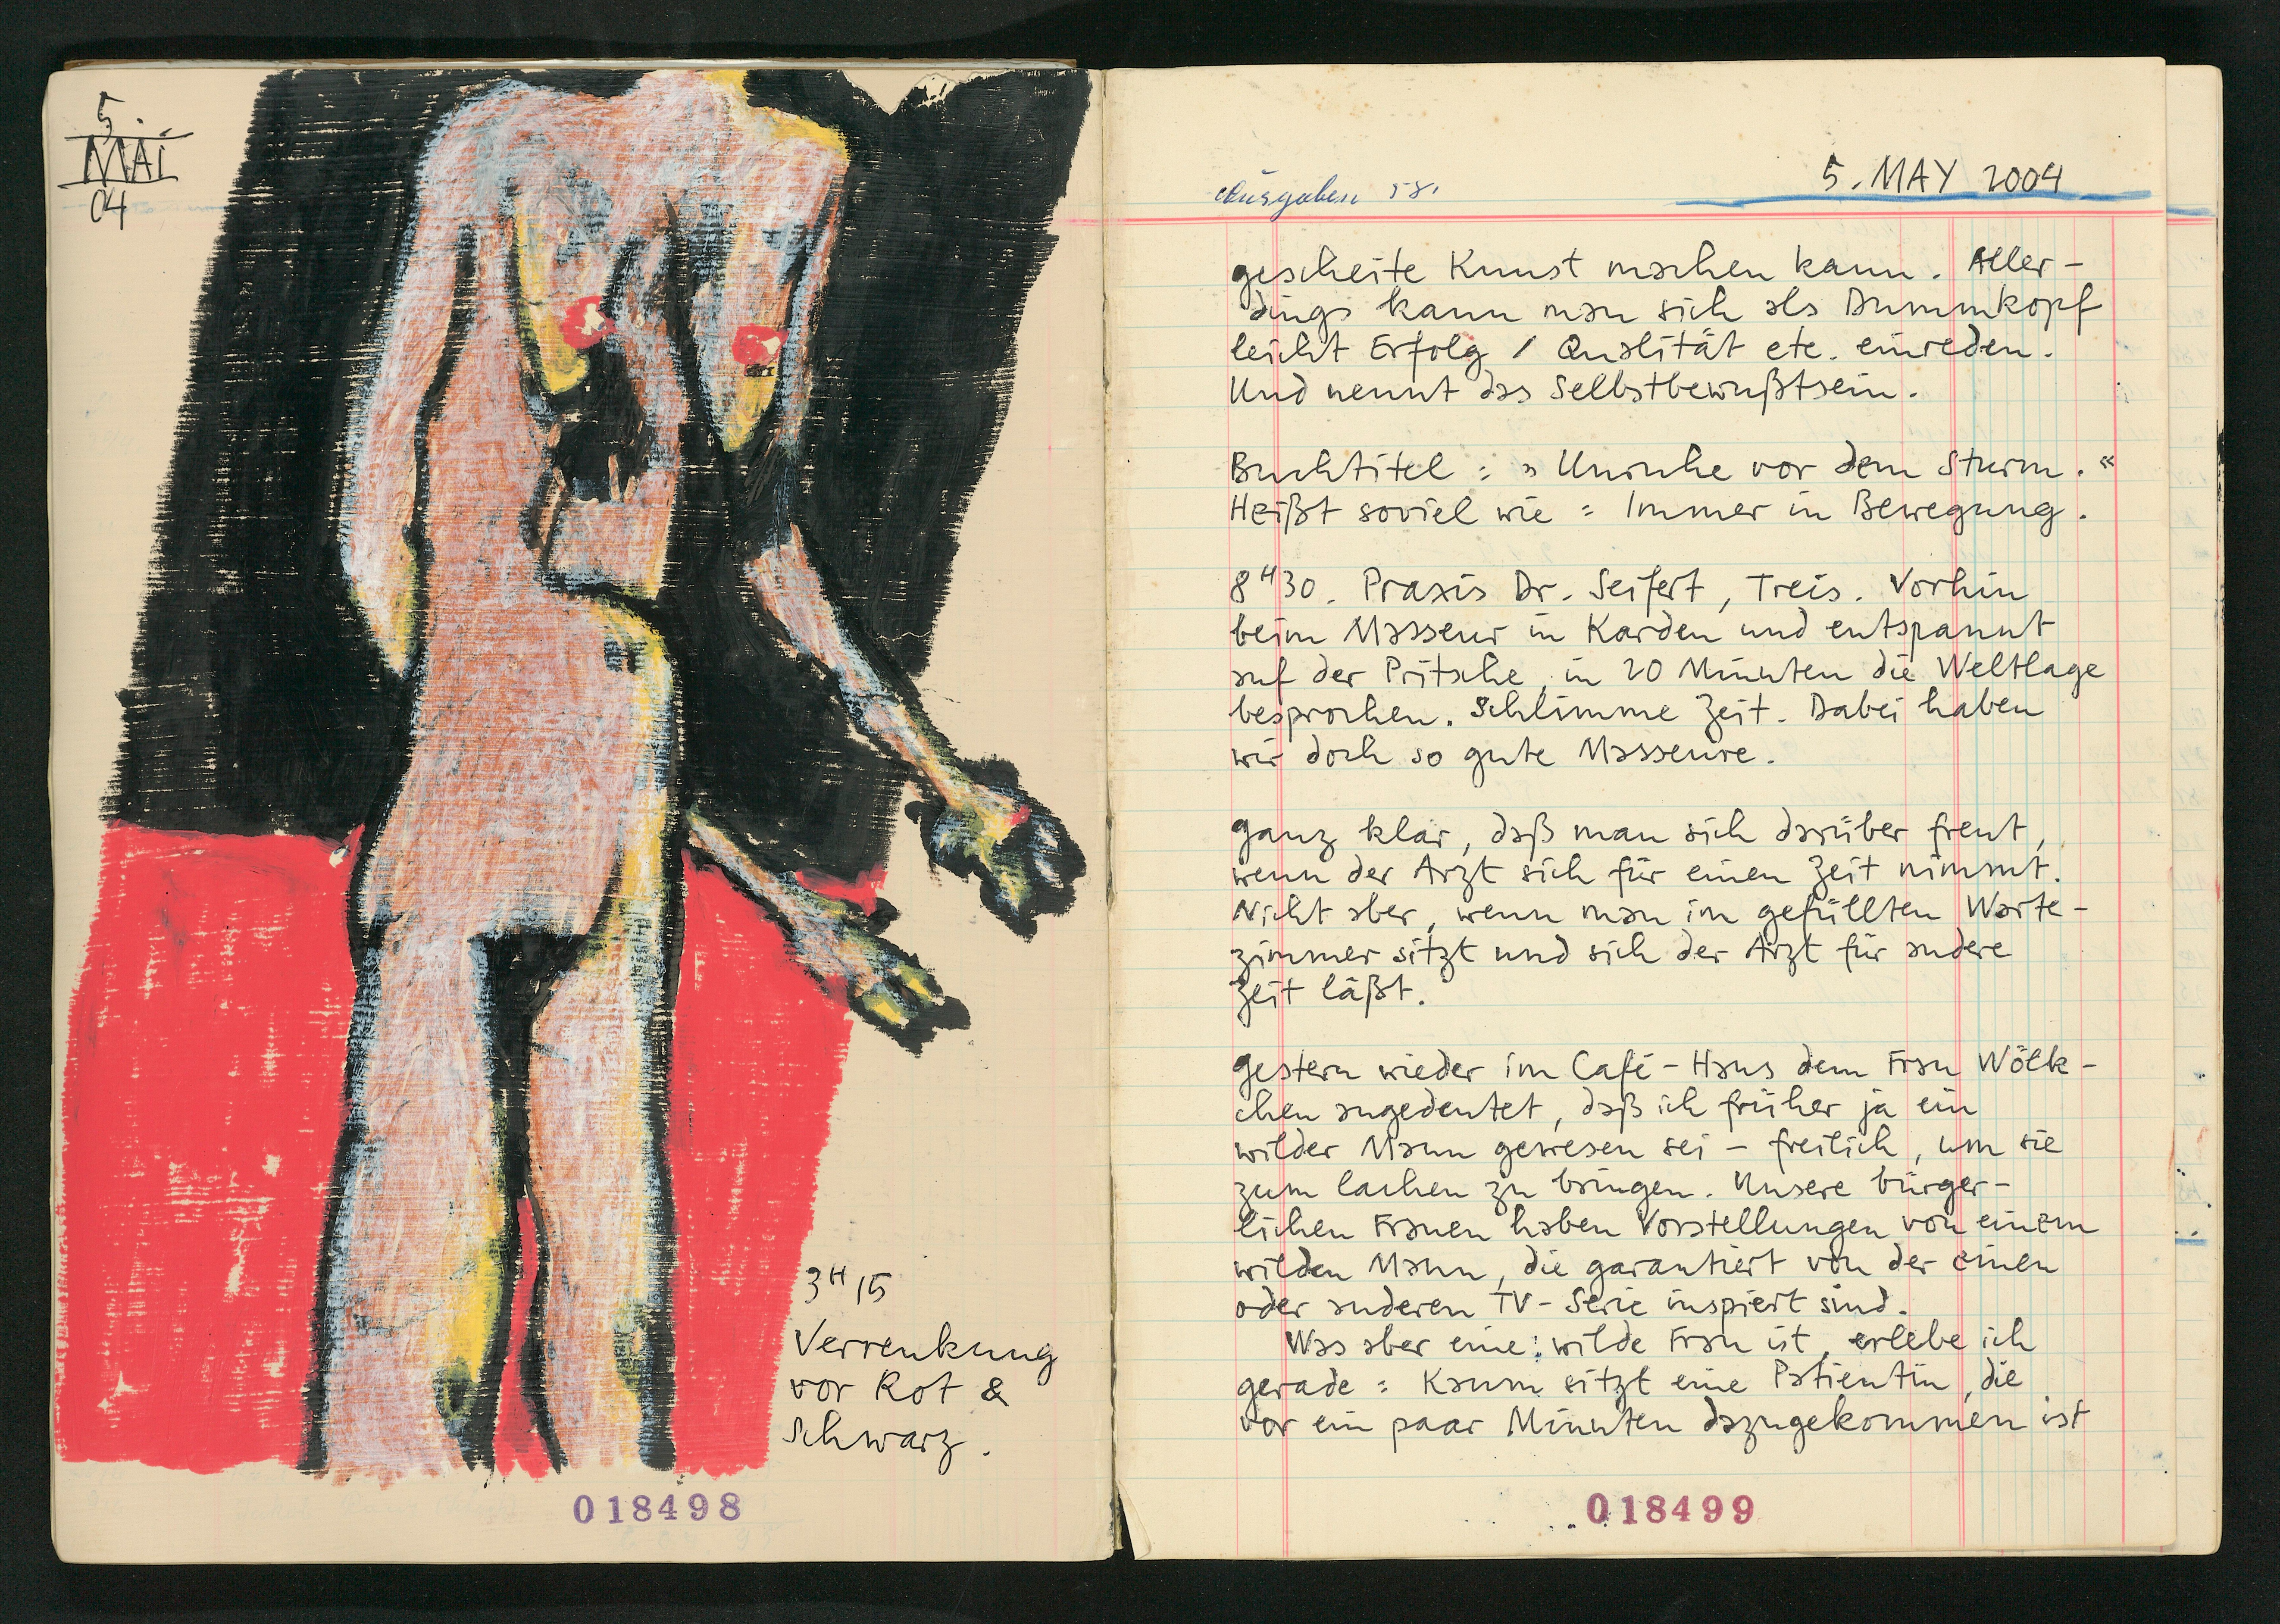 5.
MAI
04
3H15
Verrenkung
vor Rot &
Schwarz.
018498
Ausgaben 58.
5. MAY 2004
gescheite Kunst machen kann. Aller-
dings kann man sich als Dummkopf
leicht Erfolg / Qualität etc. einreden.
Und nennt das Selbstbewußtsein.
Buchtitel: »Unruhe vor dem Sturm.«
Heißt soviel wie: Immer in Bewegung.
8H30. Praxis Dr. Seifert, Treis. Vorhin
beim Masseur in Karden und entspannt
auf der Pritsche, in 20 Minuten die Weltlage
besprochen. Schlimme Zeit. Dabei haben
wir doch so gute Masseure.
ganz klar, daß man sich darüber freut,
wenn der Arzt sich für einen Zeit nimmt.
Nicht aber, wenn man im gefüllten Warte-
zimmer sitzt und sich der Arzt für andere
Zeit läßt.
gestern wieder im Café-Haus dem Frau Wölk-
chen angedeutet, daß ich früher ja ein
wilder Mann gewesen sei - freilich, um sie
zum lachen zu bringen. Unsere bürger-
lichen Frauen haben Vorstellungen von einem
wilden Mann, die garantiert von der einen
oder anderen TV-Serie inspiert sind.
Was aber eine: wilde Frau ist, erlebe ich
gerade: Kaum sitzt eine Patientin, die
vor ein paar Minuten dazugekommen ist
018499